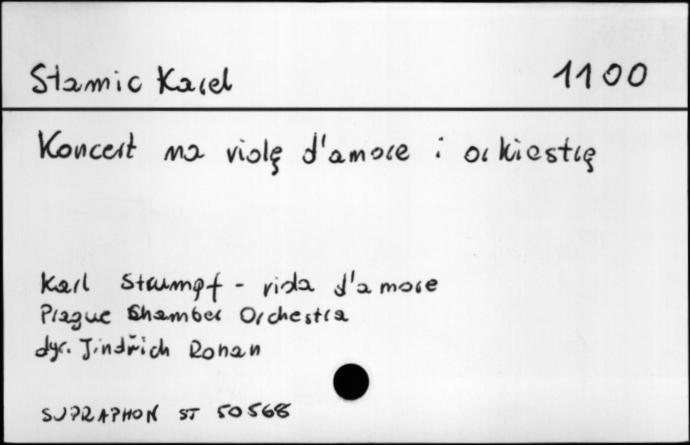 Stamic Karel 1100
Koncert na violę d'amore i orkiestrę
Karl Stumpf - viola d'amore
Prague Chamber Orchestra
dyr. Jindřich Rohan
SUPRAPHON ST 50568